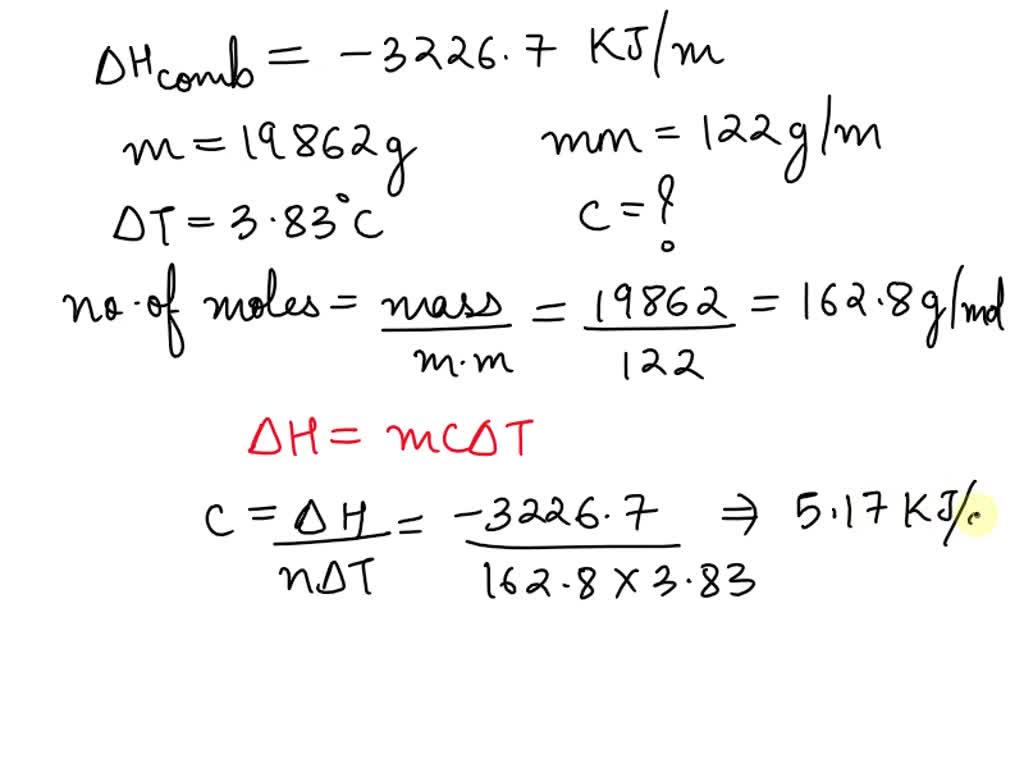 ΔHcomb = -3226.7 KJ/m
m = 19862g mm = 122g/m
ΔT = 3.83°C C = ?
no. of moles = mass/m.m = 19862/122 = 162.8g/mol
ΔH = mCΔT
C = ΔH/nΔT = -3226.7/162.8 × 3.83 ⇒ 5.17 KJ/c